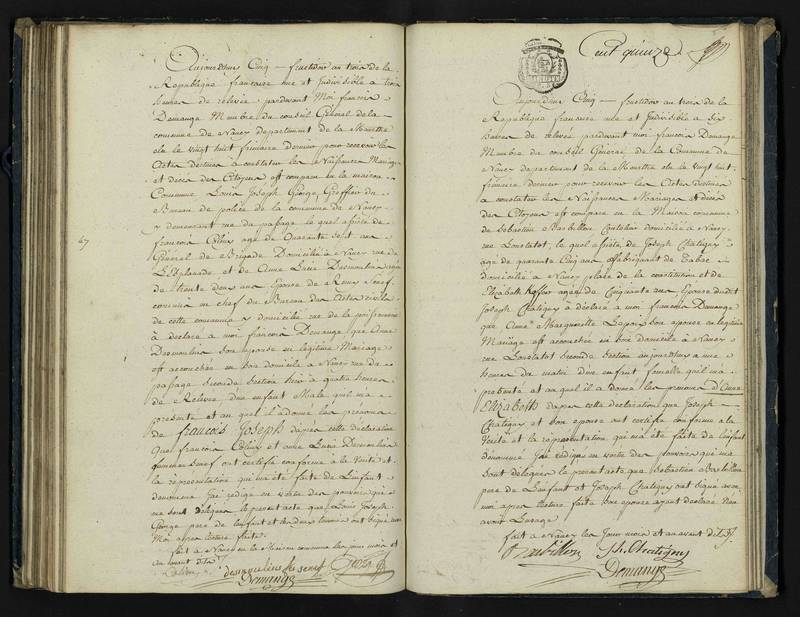 Aujourdhuy Cinq fructidor an trois de la
Republique francaise une et Indivisible a trois
heures de relevée pardevant Moi francois
Demange Membre du conseil Général de la
commune de Nancy departement de la Meurthe
elu le vingt huit frimaire dernier pour recevoir les
Actes destinés a constater les Naissances Mariages
et deces des Citoyens est comparu en la maison
Commune Louis Joseph George, Greffier du
Bureau de police de la commune de Nancy
y demeurant rue du passage le quel assisté de
francois agé de Quarante sept ans
Général de Brigade Domicilié à Nancy rue de
L'Esplanade et de Anne Lucie Desmoulins agée
de trente deux ans Epouse de Remy Senef
commis en chef du Bureau des Actes civils
de cette commune y domicilié rue de la poissonnerie
à déclaré a moi francois Demange que Anne
Desmoulins Son épouse en légitime Mariage
est accouchée en son domicile a Nancy rue du
passage seconde section hier à quatre heures
de Relevée d'un enfant Male quil ma
presenté et au quel il a donné les prenoms
de francois Joseph dapres cette déclaration
que francois et anne Lucie Desmoulins
femme Senef ont certifié conforme à la vérité et
la représentation qui ma été faite de L'enfant
denommé Jai rédigé en vertu des pouvoirs qui
me sont délégués le present acte que Louis Joseph
George pere de lenfant et les deux temoins ont signé avec
Moi apres lecture faite
fait a Nancy en la Maison commune les jour mois et
an avant dits
desmoulins fe senef George
Demange
67
Cent quinze
Aujourdhuy Cinq fructidor an trois de la
Republique francaise une et Indivisible a six
heures de relevée pardevant moi francois Demange
Membre du conseil Général de la Commune de
Nancy departement de la Meurthe elu le vingt huit
frimaire dernier pour recevoir les Actes destinés
a constater les Naissances Mariages et décès
des Citoyens est comparu en la Maison commune
Sébastien Barbillon domicilié a Nancy
rue Loustalot, le quel assisté de Joseph Chatigny
agé de quarante Cinq ans fabriquant de Tabac
domicilié a Nancy place de la constitution et de
Elizabeth agée de Cinquante ans Epouse dudit
Joseph Chatigny à déclaré a moi francois Demange
que Anne Marguerite Lapaix Son épouse en legitime
Mariage est accouchée en son domicile à Nancy
rue Loustalot seconde section aujourdhuy a une
heure du matin d'un enfant femelle quil ma
presenté et au quel il a donné les prenoms d'Anne
Elizabeth dapres cette declaration que Joseph
Chatigny et son epouse ont certifié conforme a la
vérité et la représentation qui ma été faite de lenfant
denommé Jai rédigé en vertu des pouvoirs qui me
sont délégués le present acte, que Sébastien Barbillon
pere de Lenfant et Joseph Chatigny ont signé avec
moi apres lecture faite son epouse ayant déclaré N'en
avoir Lusage
fait a Nancy les Jour mois et an avant dits
Barbillon Jh. Chatigny
Demange